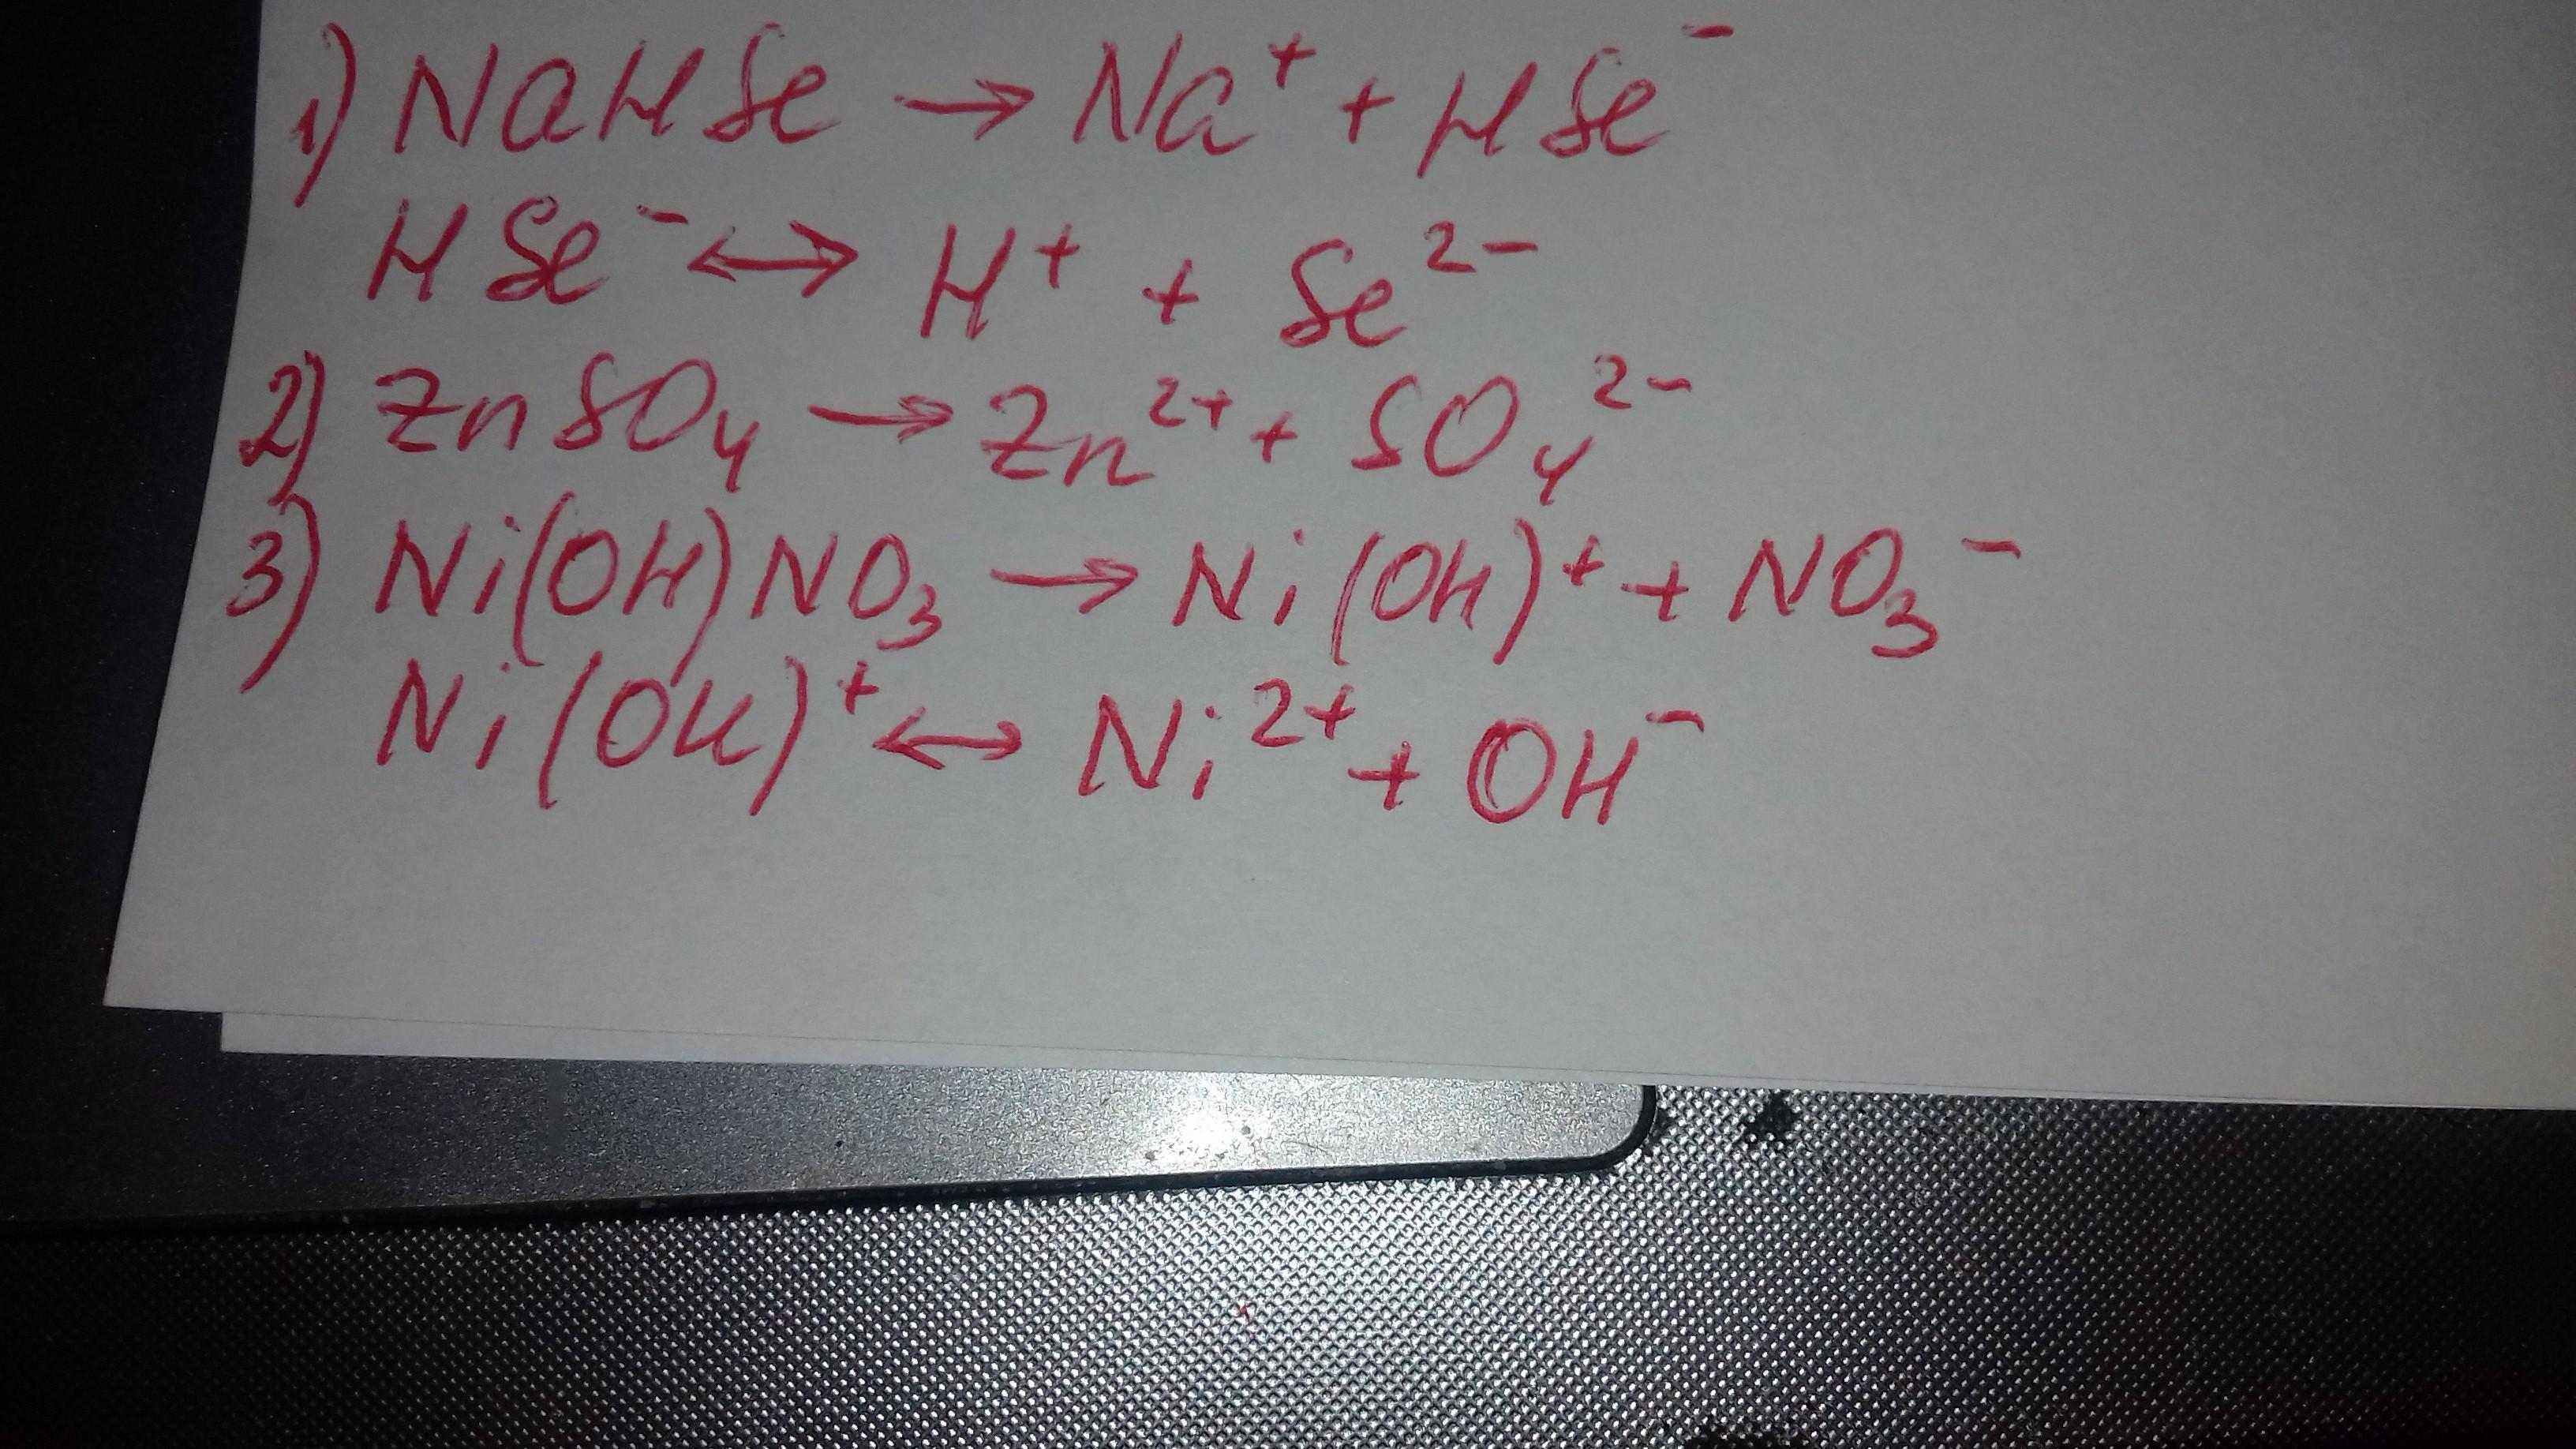 1) NaHSe → Na⁺ + HSe⁻
HSe⁻ ↔ H⁺ + Se²⁻
2) ZnSO₄ → Zn²⁺ + SO₄²⁻
3) Ni(OH)NO₃ → Ni(OH)⁺ + NO₃⁻
Ni(OH)⁺ ↔ Ni²⁺ + OH⁻